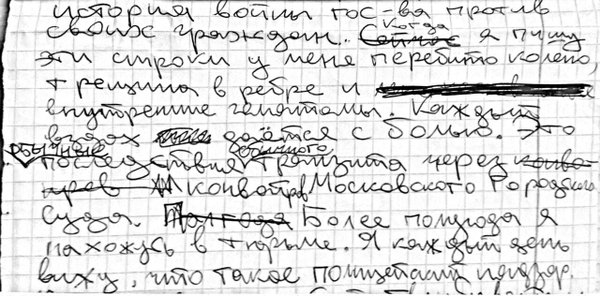 история войны гос-ва против
своих граждан. Когда я пишу
эти строки у меня перебито колено,
трещина в ребре и
внутренние гематомы. Каждый
вздох даётся с болью. Это
обычные последствия обычного транзита через
конвой Московского Городского
суда. Полгода Более полугода я
нахожусь в тюрьме. Я каждый день
вижу, что такое полицейский